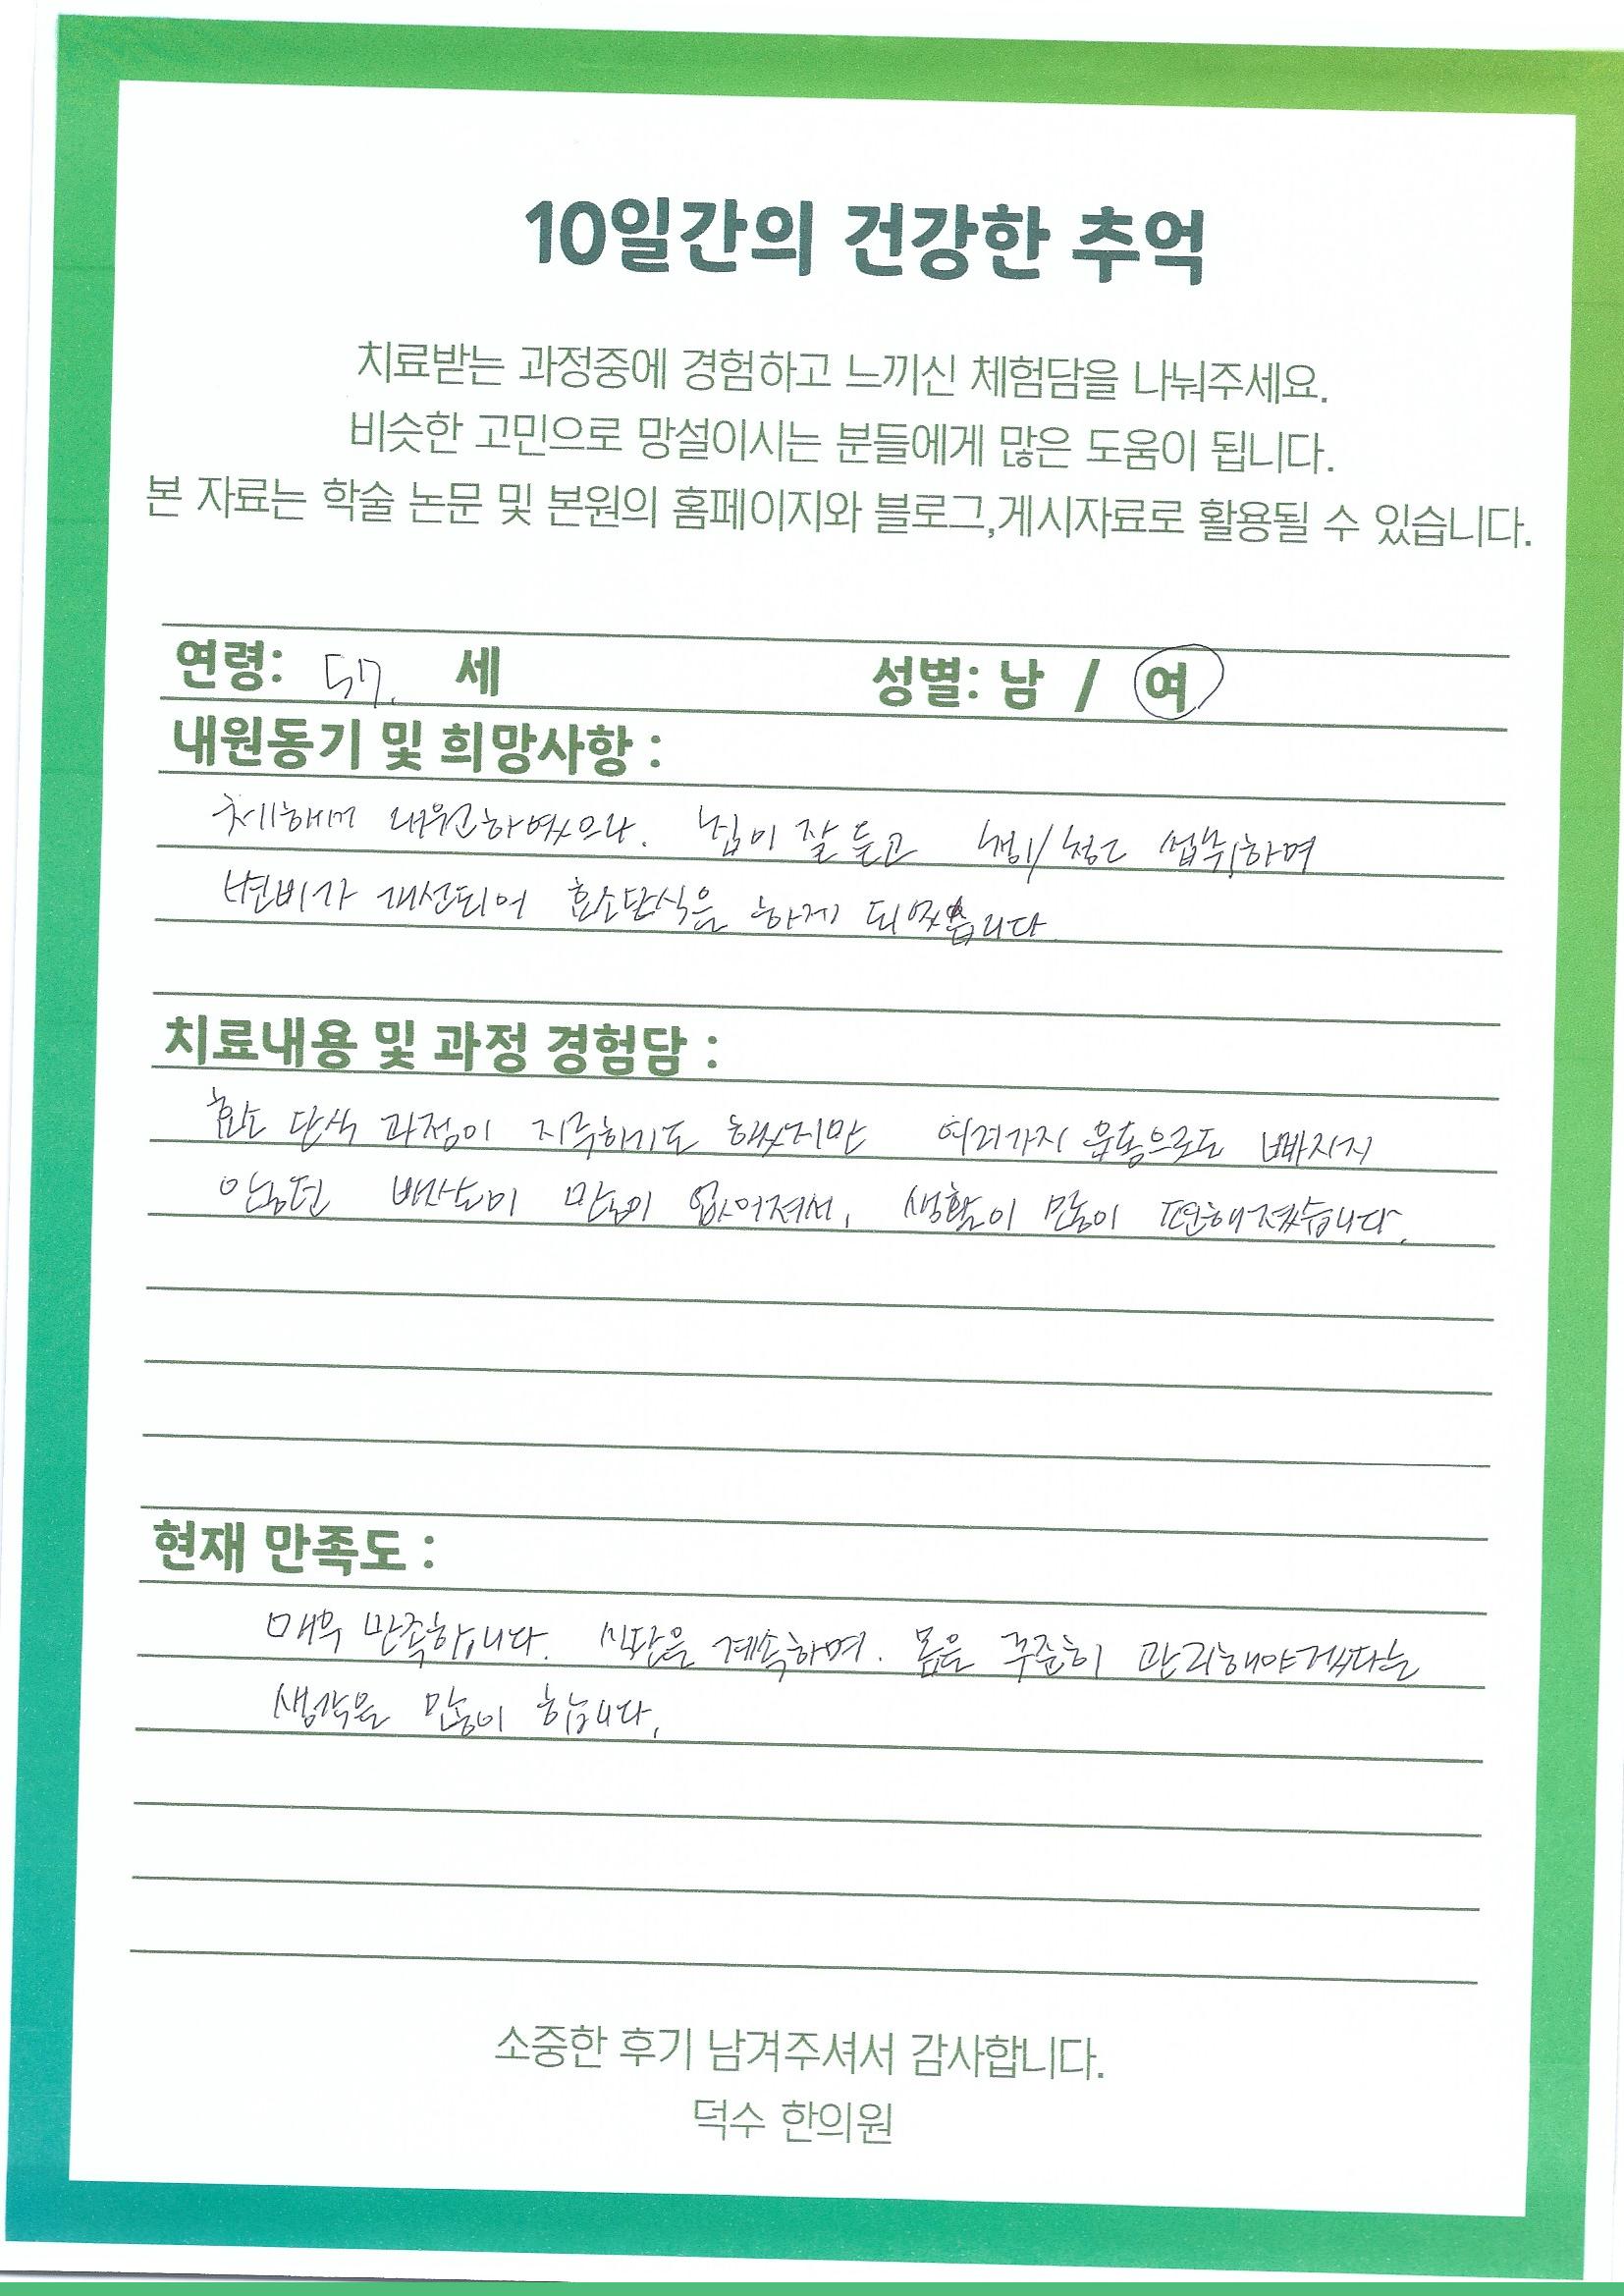 10일간의 건강한 추억
치료받는 과정중에 경험하고 느끼신 체험담을 나눠주세요.
비슷한 고민으로 망설이시는 분들에게 많은 도움이 됩니다.
본 자료는 학술 논문 및 본원의 홈페이지와 블로그,게시자료로 활용될 수 있습니다.
연령: 57. 세 성별: 남 / 여
내원동기 및 희망사항 :
체해서 내원하였으나. 침이 잘 듣고 섭취하며
변비가 개선되어 효소단식을 하게 되었습니다
치료내용 및 과정 경험담 :
효소 단식 과정이 지루하기도 했지만 여러가지 운동으로도 빠지지
않던 뱃살이 많이 없어져서, 생활이 많이 편해졌습니다.
현재 만족도 :
매우 만족합니다. 식단을 계속하며. 몸을 꾸준히 관리해야겠다는
생각을 많이 합니다.
소중한 후기 남겨주셔서 감사합니다.
덕수 한의원